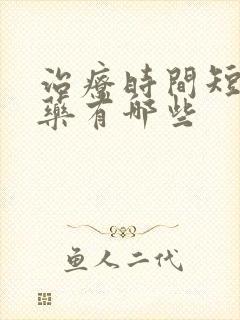 治療時間短
藥有哪些
鱼人二代